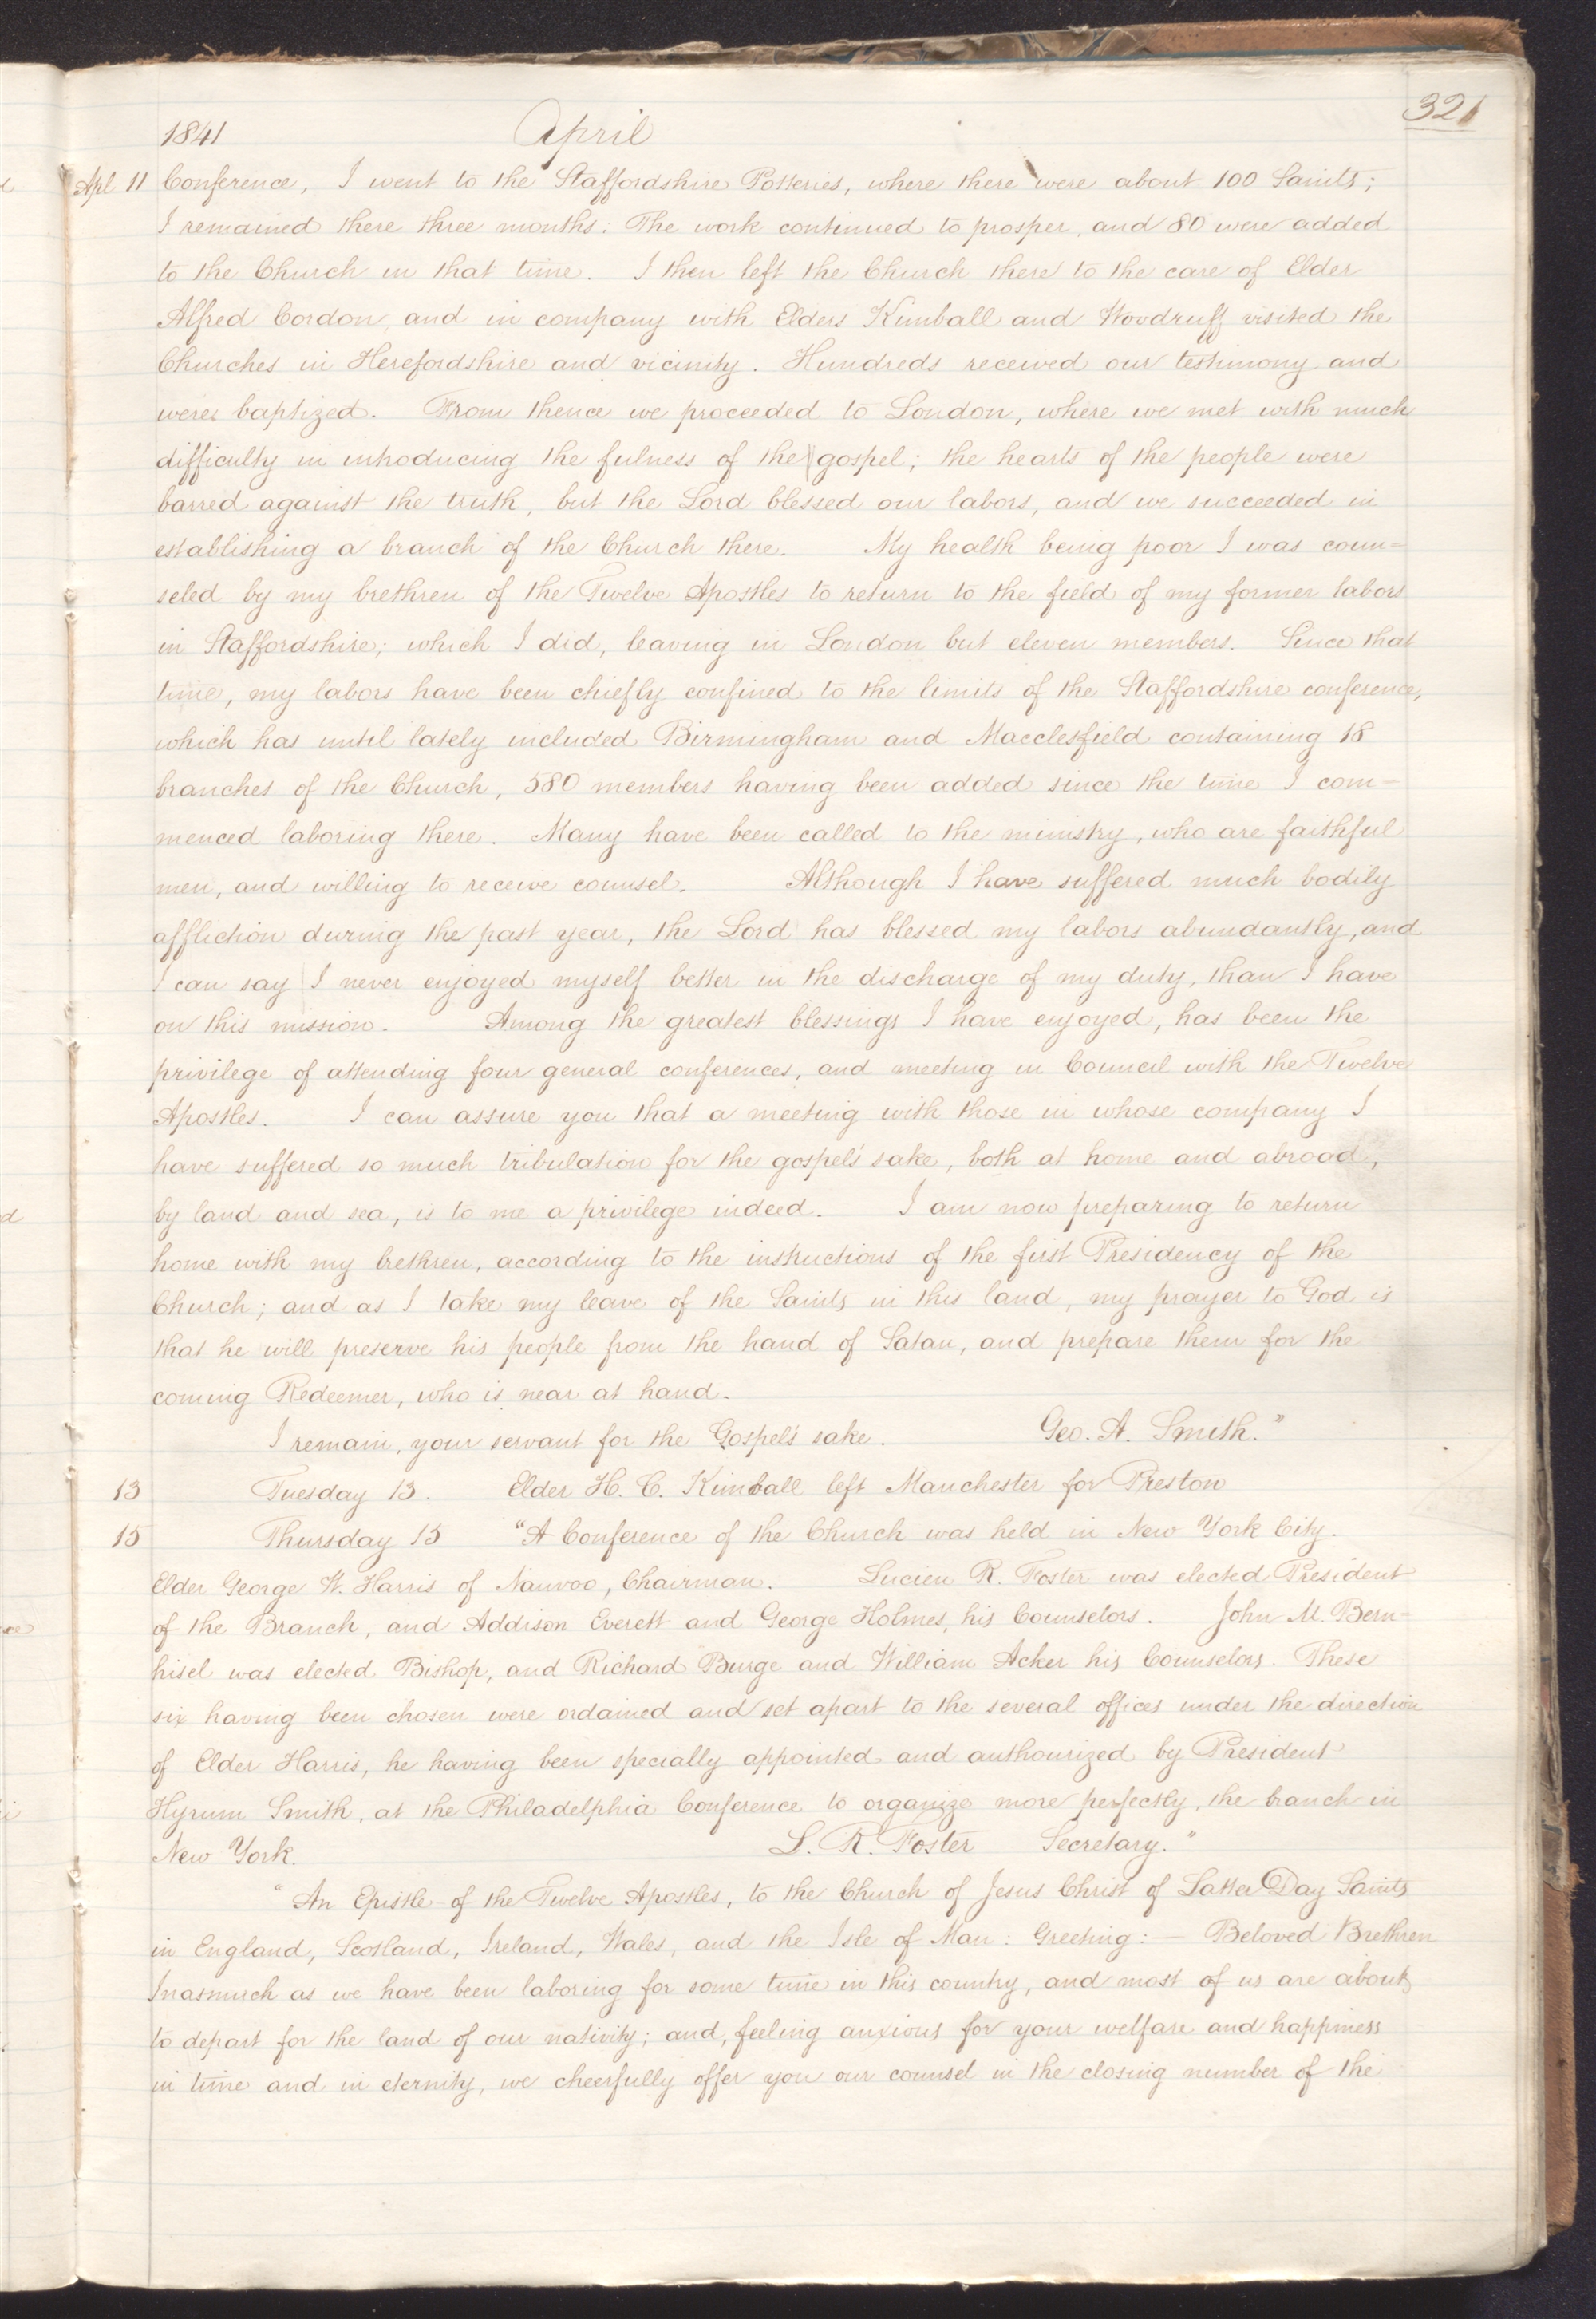 321
1841 April
Apl 11 Conference, I went to the Staffordshire Potteries, where there were about 100 Saints;
I remained there three months. The work continued to prosper, and 80 were added
to the Church in that time. I then left the Church there to the care of Elder
Alfred Cordon, and in company with Elders Kimball and Woodruff visited the
Churches in Herefordshire and vicinity. Hundreds received our testimony and
were baptized. From thence we proceeded to London, where we met with much
difficulty in introducing the fulness of the gospel; the hearts of the people were
barred against the truth, but the Lord blessed our labors, and we succeeded in
establishing a branch of the Church there. My health being poor I was coun=
seled by my brethren of the Twelve Apostles to return to the field of my former labors
in Staffordshire; which I did, leaving in London but eleven members. Since that
time, my labors have been chiefly confined to the limits of the Staffordshire conference,
which has until lately included Birmingham and Macclesfield containing 18
branches of the Church, 580 members having been added since the time I com=
menced laboring there. Many have been called to the ministry, who are faithful
men, and willing to receive counsel. Although I have suffered much bodily
affliction during the past year, the Lord has blessed my labors abundantly, and
I can say I never enjoyed myself better in the discharge of my duty, than I have
on this mission. Among the greatest blessings I have enjoyed, has been the
privilege of attending four general conferences, and meeting in Council with the Twelve
Apostles. I can assure you that a meeting with those in whose company I
have suffered so much tribulation for the gospel's sake, both at home and abroad,
by land and sea, is to me a privilege indeed. I am now preparing to return
home with my brethren, according to the instructions of the first Presidency of the
Church; and as I take my leave of the Saints in this land, my prayer to God is
that he will preserve his people from the hand of Satan, and prepare them for the
coming Redeemer, who is near at hand.
I remain, your servant for the Gospel's sake. Geo. A. Smith."
13 Tuesday 13. Elder H. C. Kimball left Manchester for Preston
15 Thursday 15 "A Conference of the Church was held in New York City.
Elder George W. Harris of Nauvoo, Chairman. Lucien R. Foster was elected President
of the Branch, and Addison Everett and George Holmes, his Counselors. John M. Bern=
hisel was elected Bishop, and Richard Burge and William Acker his Counselors. These
six having been chosen were ordained and set apart to the several offices under the direction
of Elder Harris, he having been specially appointed and authourized by President
Hyrum Smith, at the Philadelphia Conference to organize more perfectly, the branch in
New York. L. R. Foster Secretary."
"An Epistle of the Twelve Apostles, to the Church of Jesus Christ of Latter Day Saints
in England, Scotland, Ireland, Wales, and the Isle of Man: Greeting:— Beloved Brethren
Inasmuch as we have been laboring for some time in this country, and most of us are about
to depart for the land of our nativity; and, feeling anxious for your welfare and happiness
in time and in eternity, we cheerfully offer you our counsel in the closing number of the